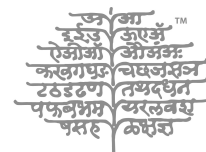 अ आ ™
इ ई उ ऊ ए ऐ
ऐ ओ औ औ अं अः
क ख ग घ ङ च छ ज झ ञ
ट ठ ड ढ ण त थ द ध न
प फ ब भ म य र ल व श
ष स ह ळ क्ष ज्ञ